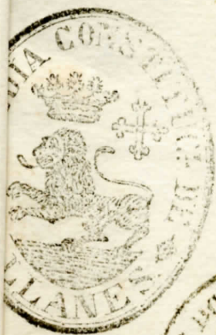 DIA CONSTITUC
DE
LLANES.